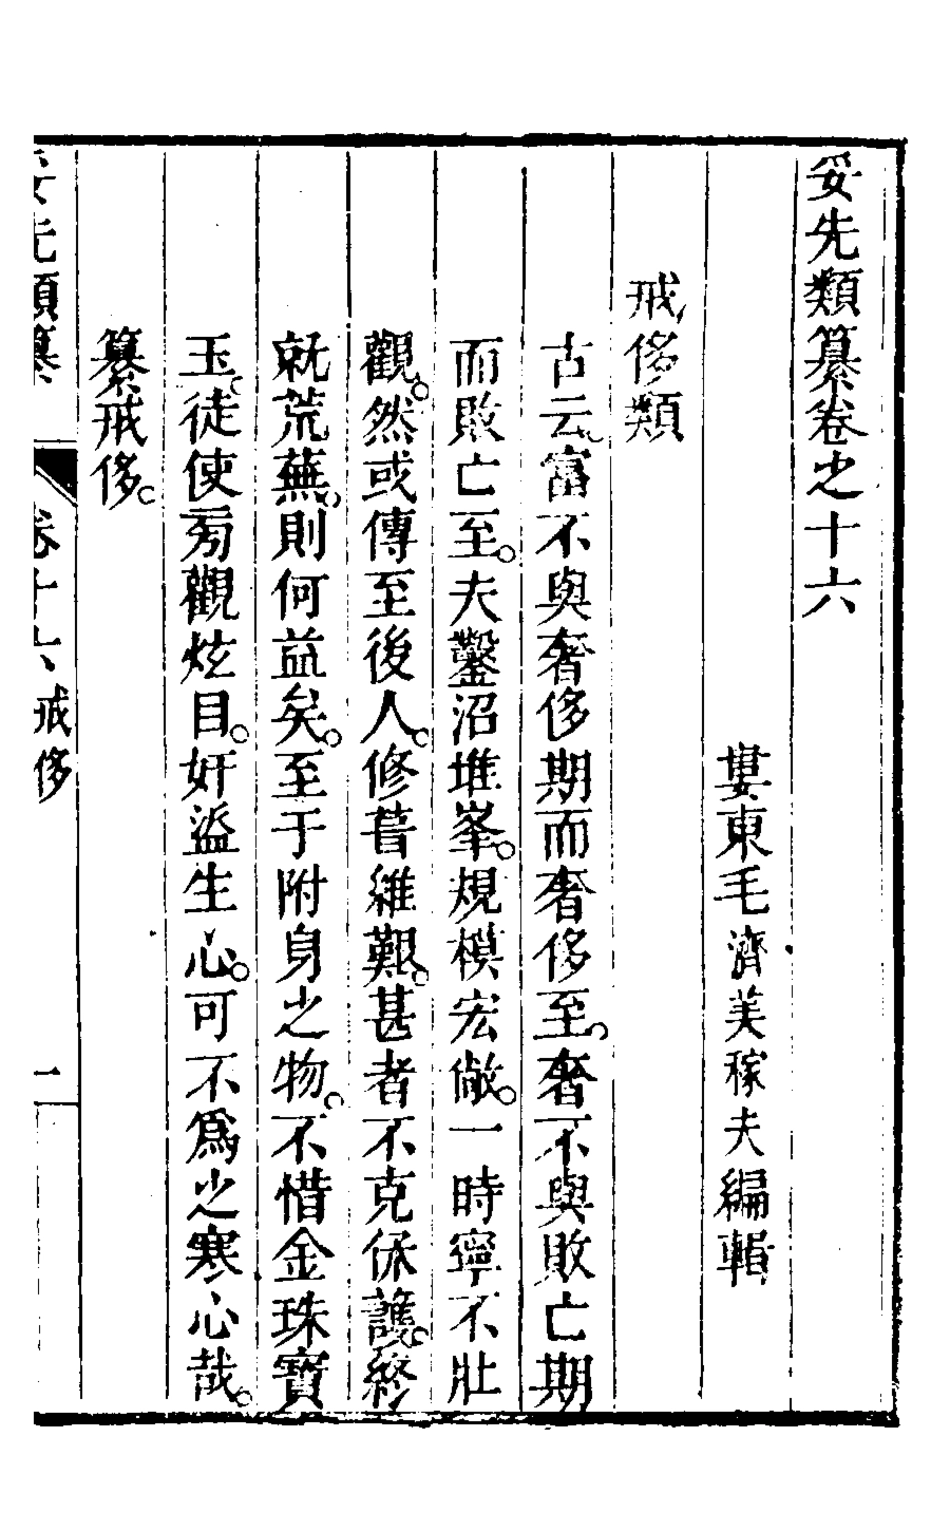 妥先類纂卷之十六
婁東毛濟美稼夫編輯
戒侈類
古云。富不與奢侈期而奢侈至。奢不與敗亡期
而敗亡至。夫鑿沼堆峯。規模宏敞。一時寧不壯
觀。然或傳至後人。修葺維艱。甚者不克保護。終
就荒蕪。則何益矣。至于附身之物。不惜金珠寶
玉。徒使旁觀炫目。奸盜生心。可不爲之寒心哉。
纂戒侈。
妥先類纂 卷十六 戒侈 一